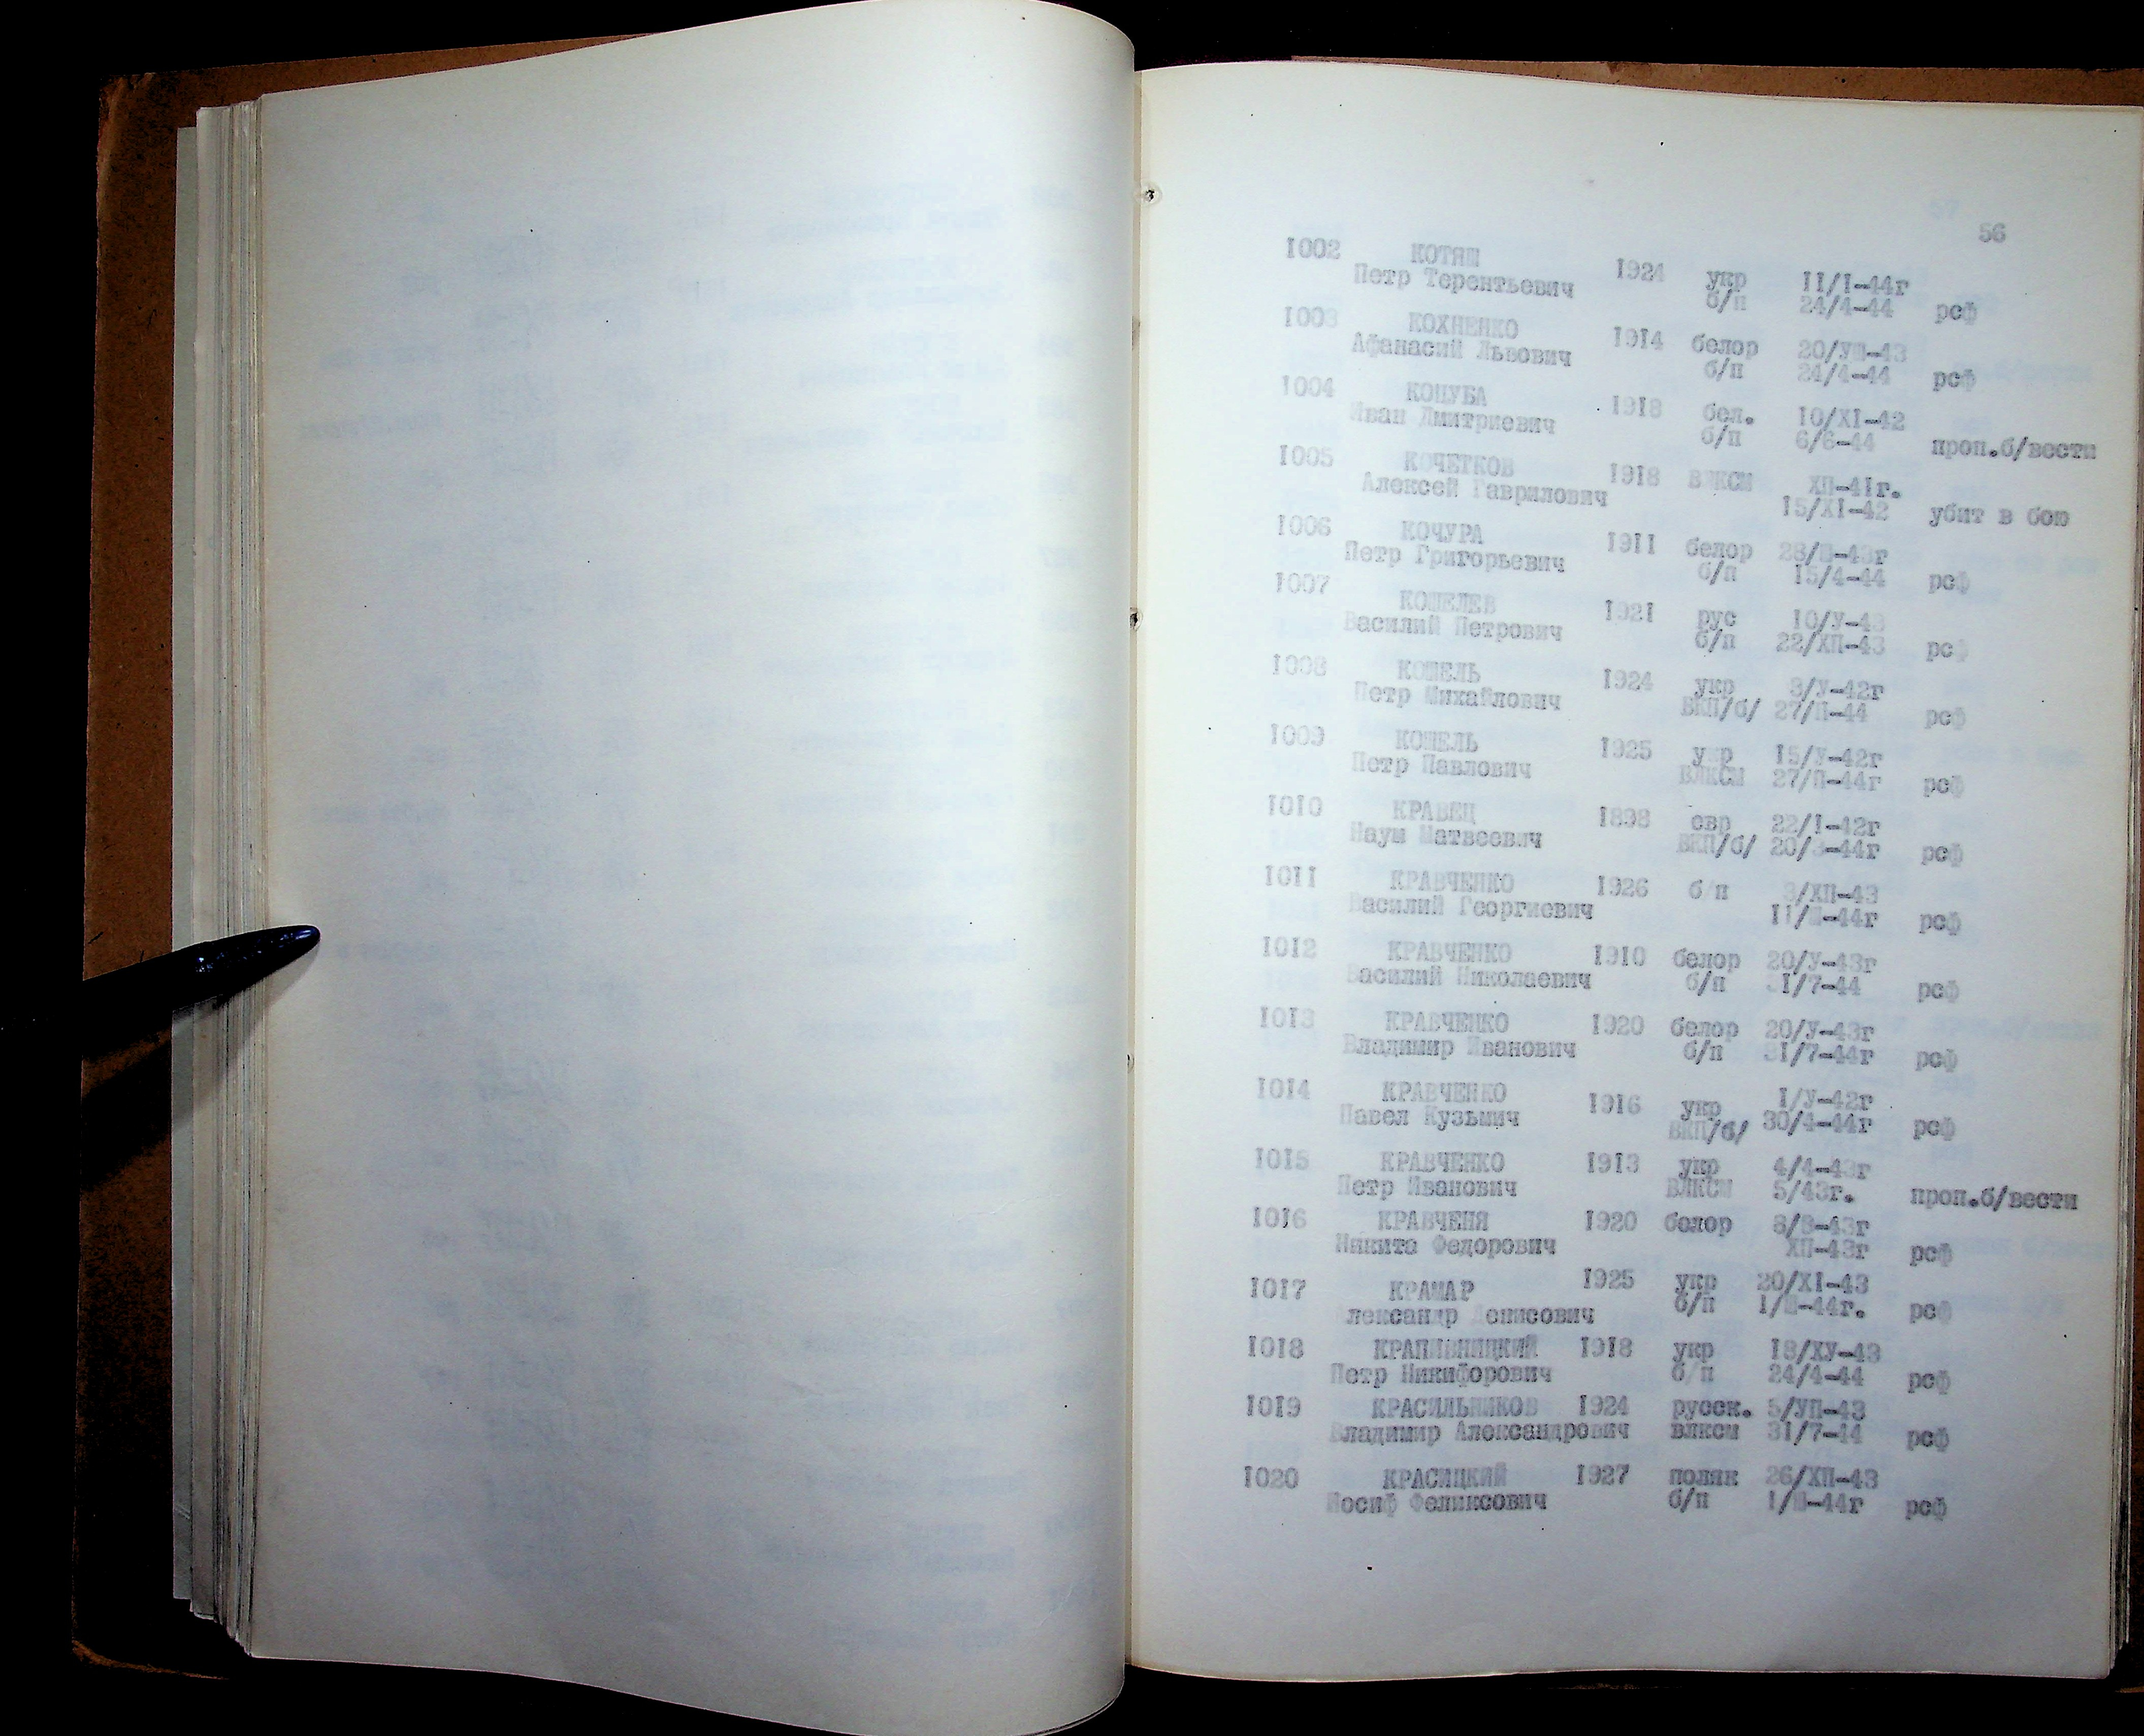 56
1002 КОТЯШ 1924 укр 11/1-44г
Петр Терентьевич б/п 24/4-44 рсф
1003 КОХНЕНКО 1914 белор 20/УШ-43
Афанасий Львович б/п 24/4-44 рсф
1004 КОЦУБА 1918 бел. 10/Х1-42
Иван Дмитриевич б/п 6/6-44 проп.б/вести
1005 КОЧЕТКОВ 1918 ВЛКСМ ХП-41г.
Алексей Гаврилович 15/Х1-42 убит в бою
1006 КОЧУРА 1911 белор 28/Ш-43г
Петр Григорьевич б/п 15/4-44 рсф
1007 КОШЕЛЕВ 1921 рус 10/У-43
Василий Петрович б/п 22/ХП-43 рсф
1008 КОШЕЛЬ 1924 укр 3/У-42г
Петр Михайлович ВКП/б/ 27/П-44 рсф
1009 КОШЕЛЬ 1925 укр 15/У-42г
Петр Павлович ВЛКСМ 27/П-44г рсф
1010 КРАВЕЦ 1898 евр 22/1-42г
Наум Матвеевич ВКП/б/ 20/3-44г рсф
1011 КРАВЧЕНКО 1926 б/п 3/ХП-43
Василий Георгиевич 11/Ш-44г рсф
1012 КРАВЧЕНКО 1910 белор 20/У-43г
Василий Николаевич б/п 31/7-44 рсф
1013 КРАВЧЕНКО 1920 белор 20/У-43г
Владимир Иванович б/п 31/7-44г рсф
1014 КРАВЧЕНКО 1916 укр 1/У-42г
Павел Кузьмич ВКП/б/ 30/4-44г рсф
1015 КРАВЧЕНКО 1913 укр 4/4-43г
Петр Иванович ВЛКСМ 5/43г. проп.б/вести
1016 КРАВЧЕНЯ 1920 белор 8/8-43г
Никита Федорович ХП-43г рсф
1017 КРАМАР 1925 укр 20/Х1-43
Александр Денисович б/п 1/Ш-44г. рсф
1018 КРАПИВНИЦКИЙ 1918 укр 18/ХУ-43
Петр Никифорович б/п 24/4-44 рсф
1019 КРАСИЛЬНИКОВ 1924 русск. 5/УП-43
Владимир Александрович влксм 31/7-44 рсф
1020 КРАСИЦКИЙ 1927 поляк 26/ХП-43
Иосиф Феликсович б/п 1/Ш-44г рсф